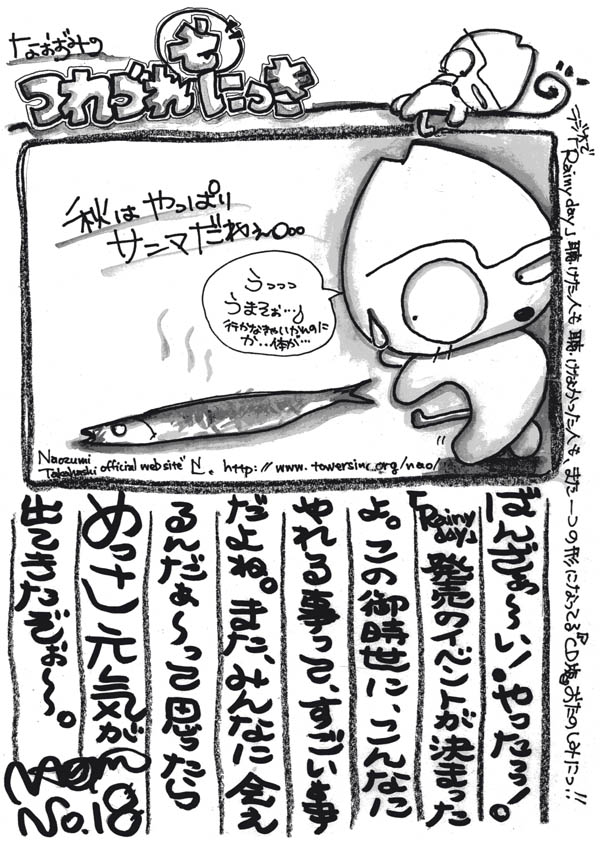 なおずみの
つれづれ
にっき
秋は やっぱり
サンマだねぇ〜○○○
うっっっ
うまそぉ…
行かなきゃいかんのに
か…体が…
Naozumi
Takahashi official website
http://www.towersinc.org/nao/
ラジオで「Rainy day」聴けた人も聴けなかった人も また一つの形になってる『CD盤』おたのしみにっ!!
ばんざぁ〜い!やったぅ!。
「Rainy day」発売のイベントが決まった
よ。この御時世に、こんなに
やれる事って、すごい事
だよね。また、みんなに会え
るんだぁ〜って思ったら
めっさし元気が
出てきたぞぉ〜。
No.18